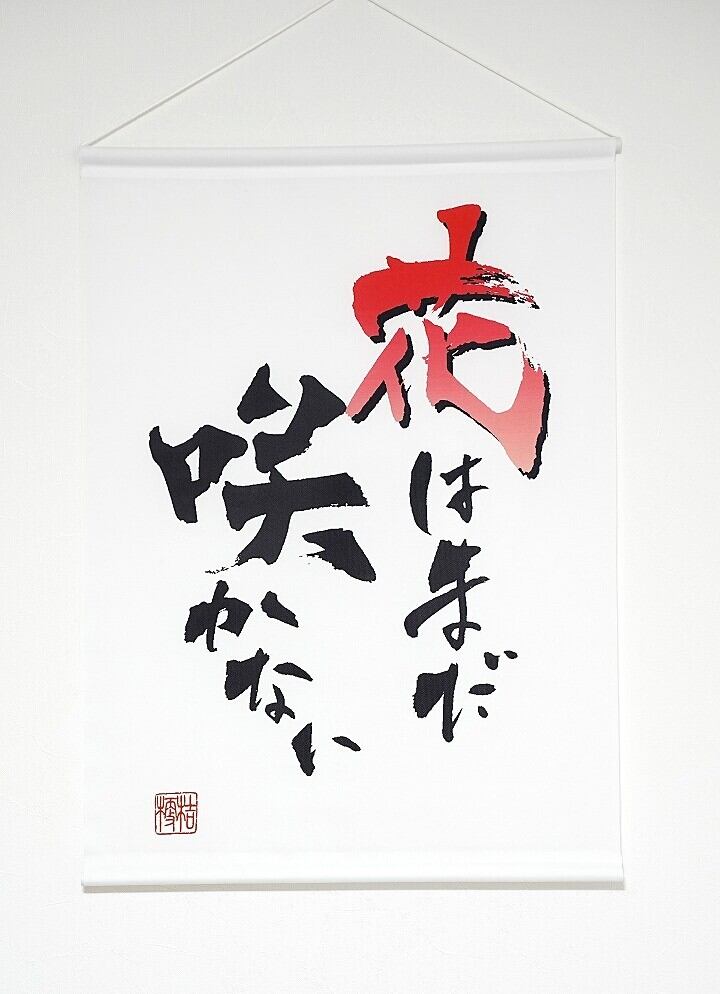 花はまだ
咲かない